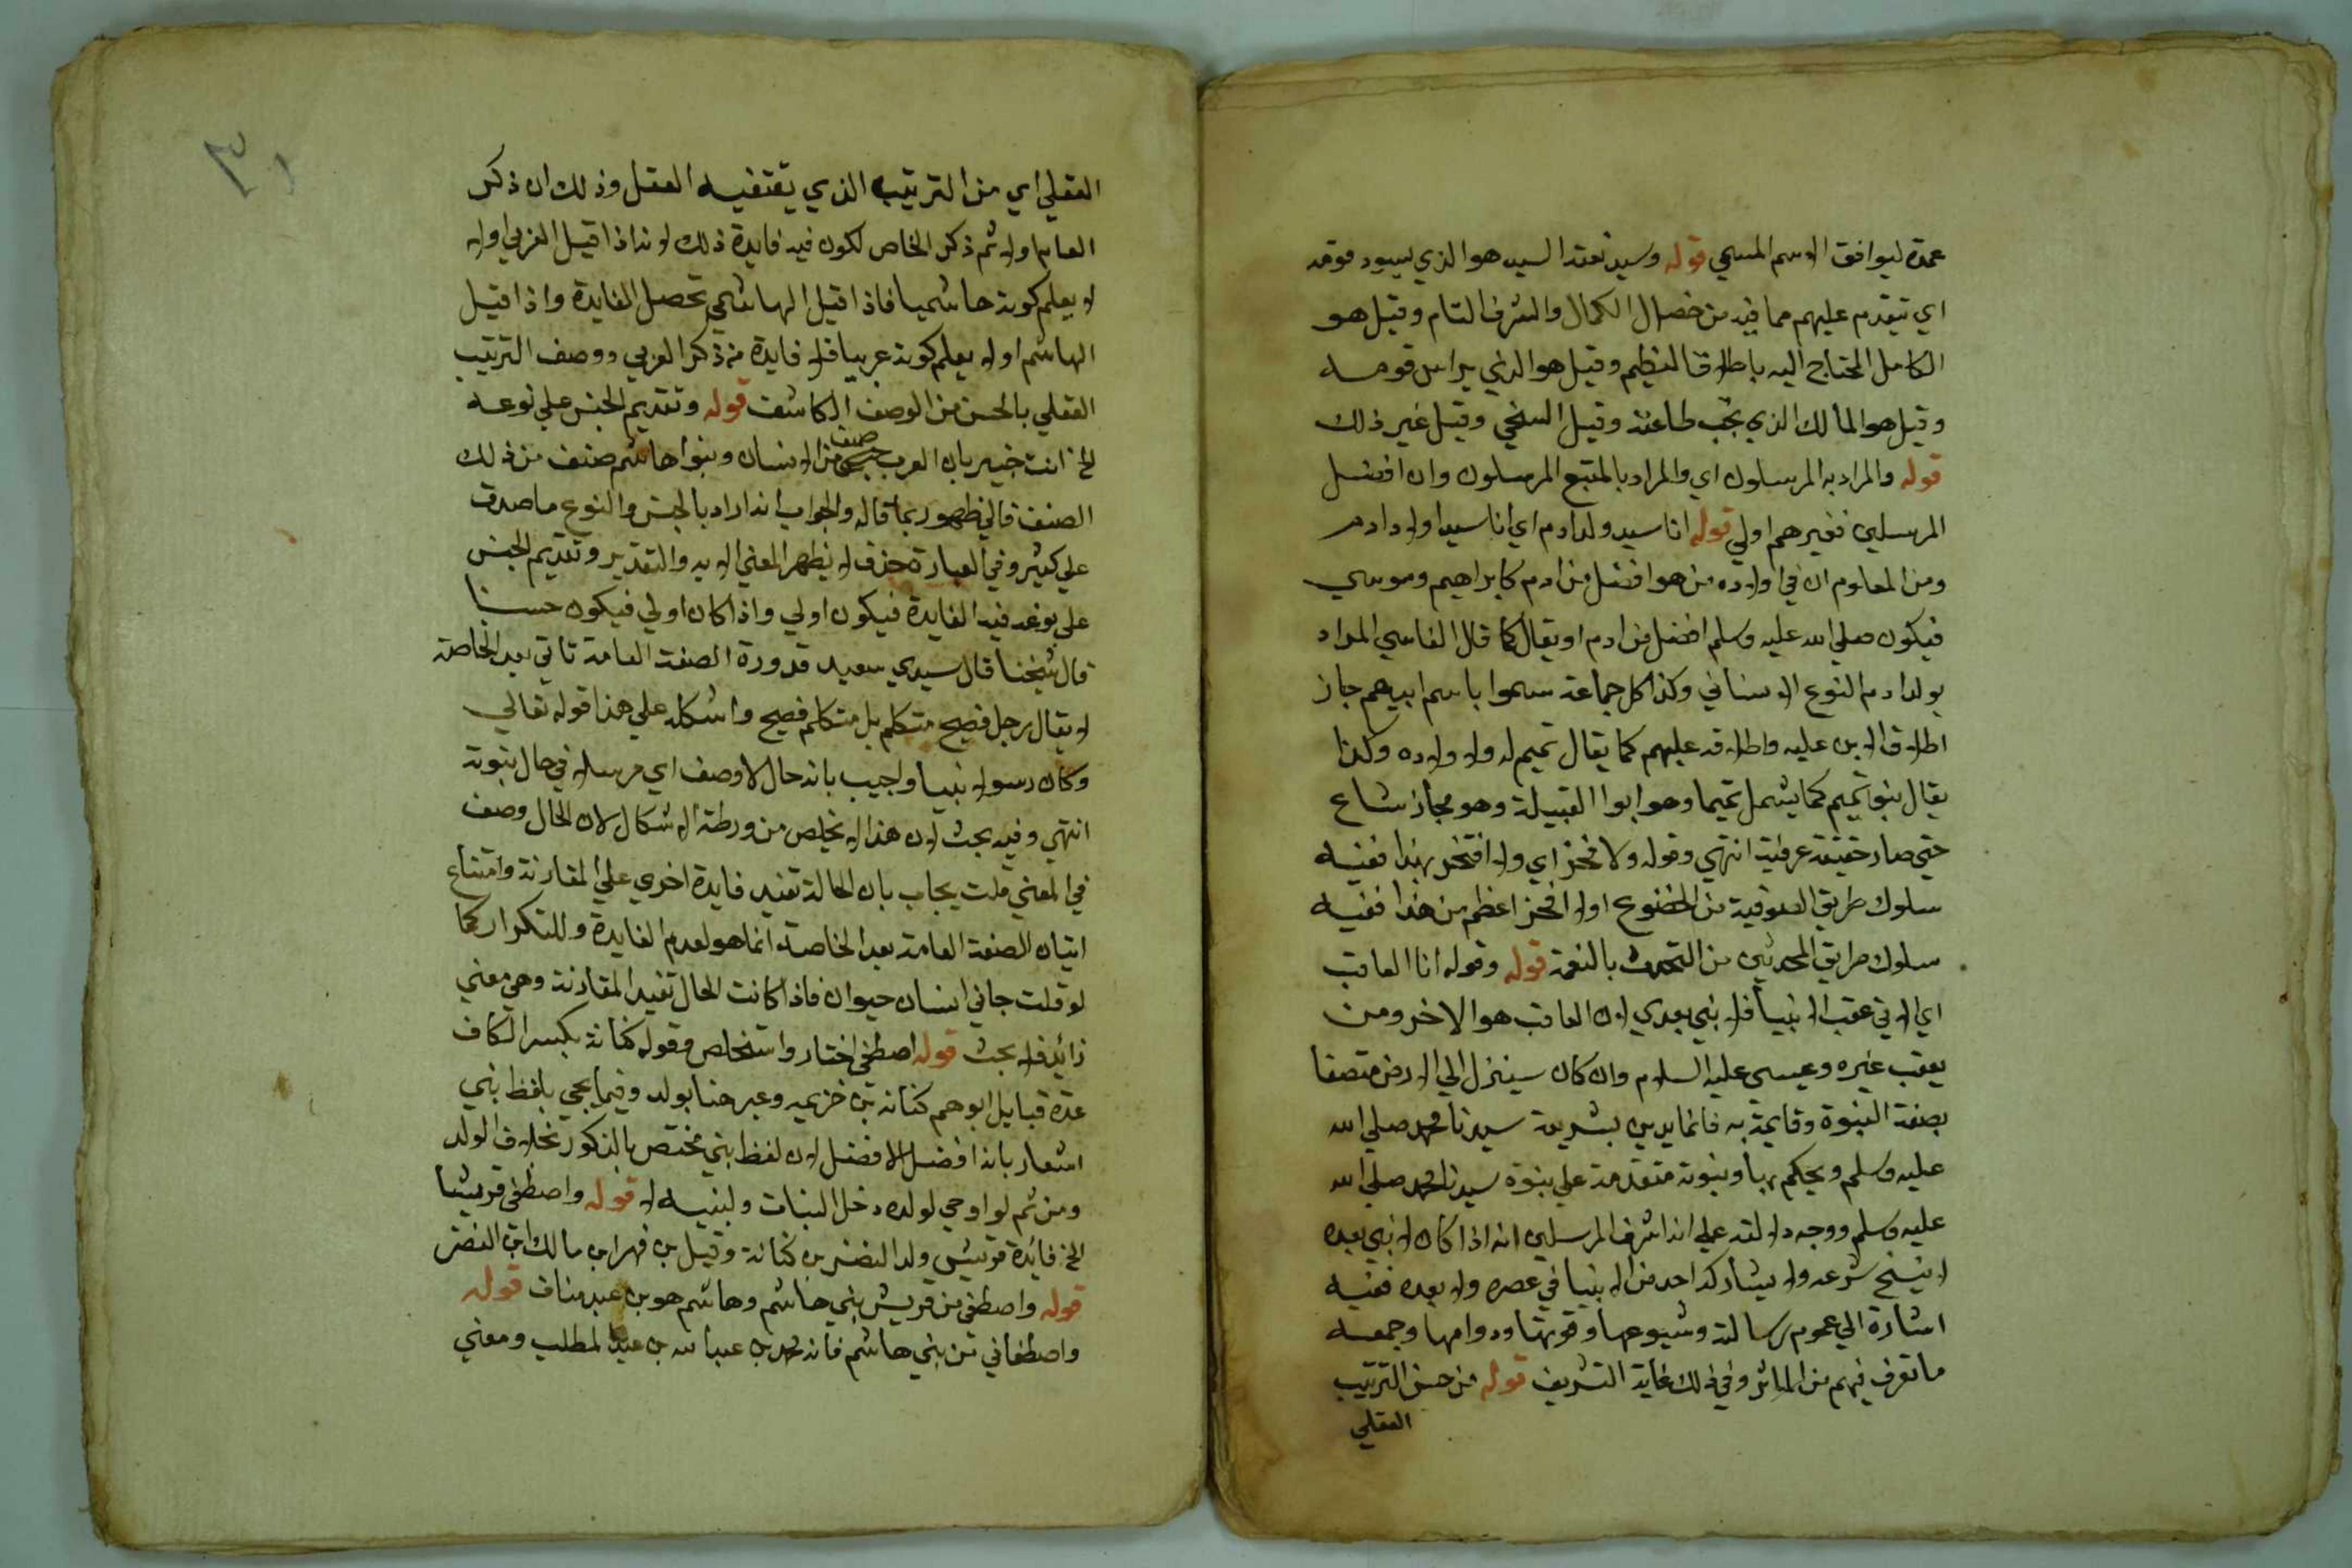 عمدة ليوافق الاسم المسمي قوله وسيد نعته السيد هو الذي يسود قومه
اي يتقدم عليهم مما فيه من خصال الكمال والشرف التام وقيل هو
الكامل المحتاج اليه باطلاق العظيم وقيل هو الذي يراس قومه
وقيل هو المالك الذي تجب طاعته وقيل السخي وقيل غير ذلك
قوله والمراد به المرسلون اي والمراد بالمتبع المرسلون وان افضل
المرسلين فغيرهم اولي قوله انا سيد ولد ادم اي انا سيد اولاد ادم
ومن المعلوم ان في اولاده من هو افضل من ادم كابراهيم وموسي
فيكون صلي الله عليه وسلم افضل من ادم او يقال كما قال الفاسي المراد
بولد ادم النوع الانساني وكذا كل جماعة سموا باسم ابيهم جاز
اطلاق الابن عليه واطلاقه عليهم كما يقال تميم له ولاولاده وكذا
يقال بنو تميم كما يشمل تميما وهو ابوا القبيلة وهو مجاز شاع
حتي صار حقيقة عرفية انتهي وقوله ولا فخر اي ولا افتخر بهذا ففيه
سلوك طريق الصوفية من الخضوع اولا افخر اعظم من هذا ففيه
سلوك طريق المحدثين من التحدث بالنعمة قوله وقوله انا العاقب
اي الاتي عقب الانبياء فلا نبي بعدي لان العاقب هو الاخر ومن
يعقب غيره وعيسي عليه السلام وان كان سينزل الي الارض متصفا
بصفة النبوة وقايمة به فانما يدين بشريعة سيدنا محمد صلي الله
عليه وسلم ويحكم بها ونبوته متقدمة علي نبوة سيدنا محمد صلي الله
عليه وسلم ووجه دلالته علي انه اشرف المرسلين انه اذا كان لا نبي بعده
لا ينسخ شرعه ولا يشاركه احد من الانبيا في عصره ولا بعده ففيه
اشارة الي عموم رسالته وشيوعها وقوتها ودوامها وجمعه
ما تفرق فيهم من الماثر وفي ذلك غاية التشريف قوله من حسن الترتيب
العقلي
٣١
العقلي اي من الترتيب الذي يقتضيه العقل وذلك ان ذكر
العام اولا ثم ذكر الخاص لكون فيه فايدة ذلك لانه اذا قيل العربي اولا
لا يعلم كونه هاشميا فاذا قيل الهاشمي تحصل الفايدة واذا قيل
الهاشم اولا يعلم كونه عربيا فلا فايدة من ذكر العربي ووصف الترتيب
العقلي بالحسن من الوصف الكاشف قوله وتقديم الجنس علي نوعه
الخ انت خبير بان العرب صنف من الانسان وبنوا هاشم صنف من ذلك
الصنف فالي ظهور بما قاله والجواب انه اراد بالجنس والنوع ما صدق
علي كثير وفي العبارة حذف لا يظهر المعني الا به والتقدير وتقديم الجنس
علي نوعه فيه الفايدة فيكون اولي واذا كان اولي فيكون حسنا
قال شيخنا قال سيدي سعيد قدورة الصفة العامة تاتي بعد الخاصة
لا يقال رجل فصيح متكلم بل متكلم فصيح واشكله علي هذا قوله تعالي
وكان رسولا نبيا واجيب بانه حال لا وصف اي مرسلا في حال نبوته
انتهي وفيه بحث لان هذا لا يخلص من ورطة الاشكال لان الحال وصف
في المعني قلت يجاب بان الحالة تفيد فايدة اخري علي المقارنة وامتناع
اتيان الصفة العامة بعد الخاصة انما هو لعدم الفايدة وللتكرار كما
لو قلت جاني انسان حيوان فاذا كانت الحال تفيد المقارنة وهي معني
زائد فلا بحث قوله اصطفي اختار واستخلص وقوله كنانة بكسر الكاف
عدة قبايل ابوهم كنانة بن خزيمه وعبر هنا بولد وفيما يجي بلفظ بني
اشعار بانه افضل الافضل لان لفظ بني مختص بالذكور بخلاف الولد
ومن ثم لو اوصي لولده دخل البنات ولبنيه لا قوله واصطفي قريشا
الخ فائدة قريش ولد النضر بن كنانة وقيل بن فهر ابن مالك ابن النضر
قوله واصطفي من قريش بني هاشم وهاشم هو بن عبد مناف قوله
واصطفاني من بني هاشم فانه محمد بن عبد الله بن عبد المطلب ومعني